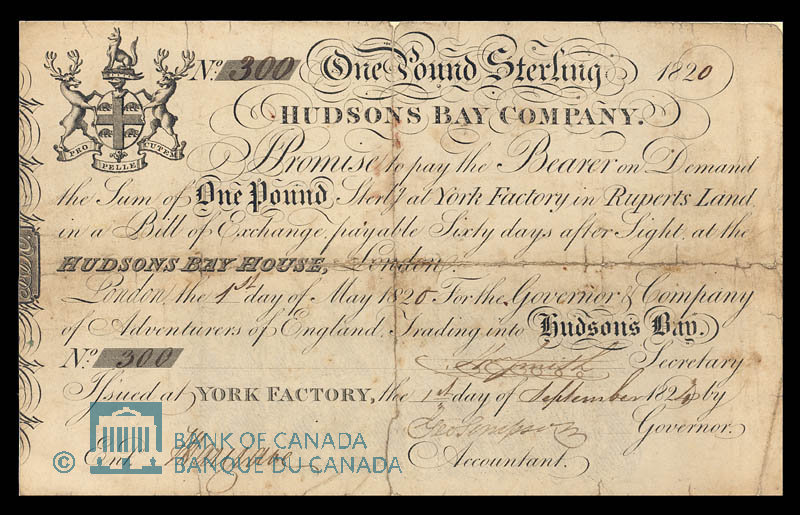 No. 300 One Pound Sterling 1820
HUDSONS BAY COMPANY.
PRO PELLE CUTEM
I Promise to pay the Bearer on Demand
the Sum of One Pound Sterlg. at York Factory in Ruperts Land
in a Bill of Exchange, payable Sixty days after Sight, at the
HUDSONS BAY HOUSE, London.
London, the 1st day of May 1820 For the Governor & Company
of Adventurers of England, Trading into Hudsons Bay.
No. 300
Smith Secretary
Issued at YORK FACTORY, the 1st day of September 182 by
Geo Simpson Governor.
Entd. Accountant.
© BANK OF CANADA
BANQUE DU CANADA